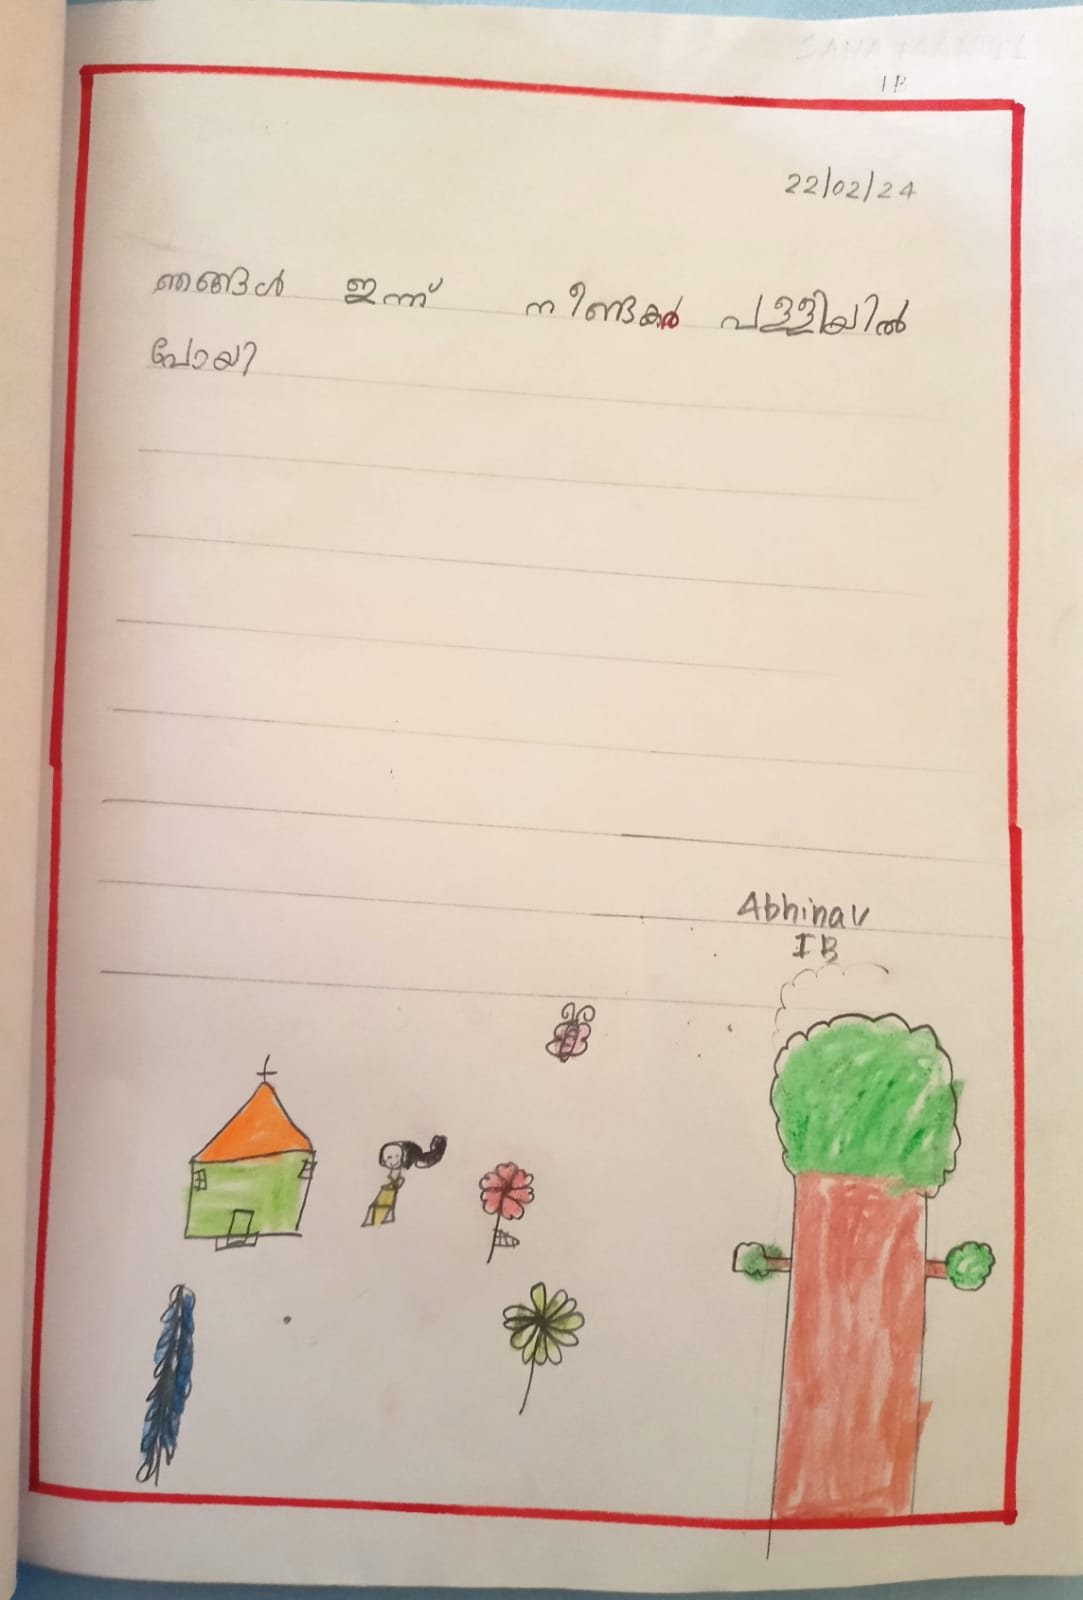 1B
22/02/24
ഞങ്ങൾ ഇന്ന് നീണ്ടകര പള്ളിയിൽ
പോയി
Abhinav
I B